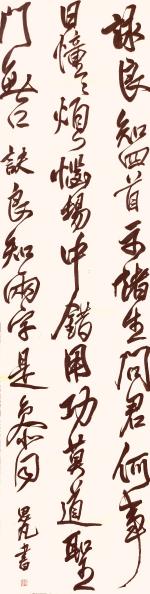 詠良知四首示諸生問君何事
日憧憧煩惱場中錯用功莫道聖
門無口訣良知兩字是參同
思凡書